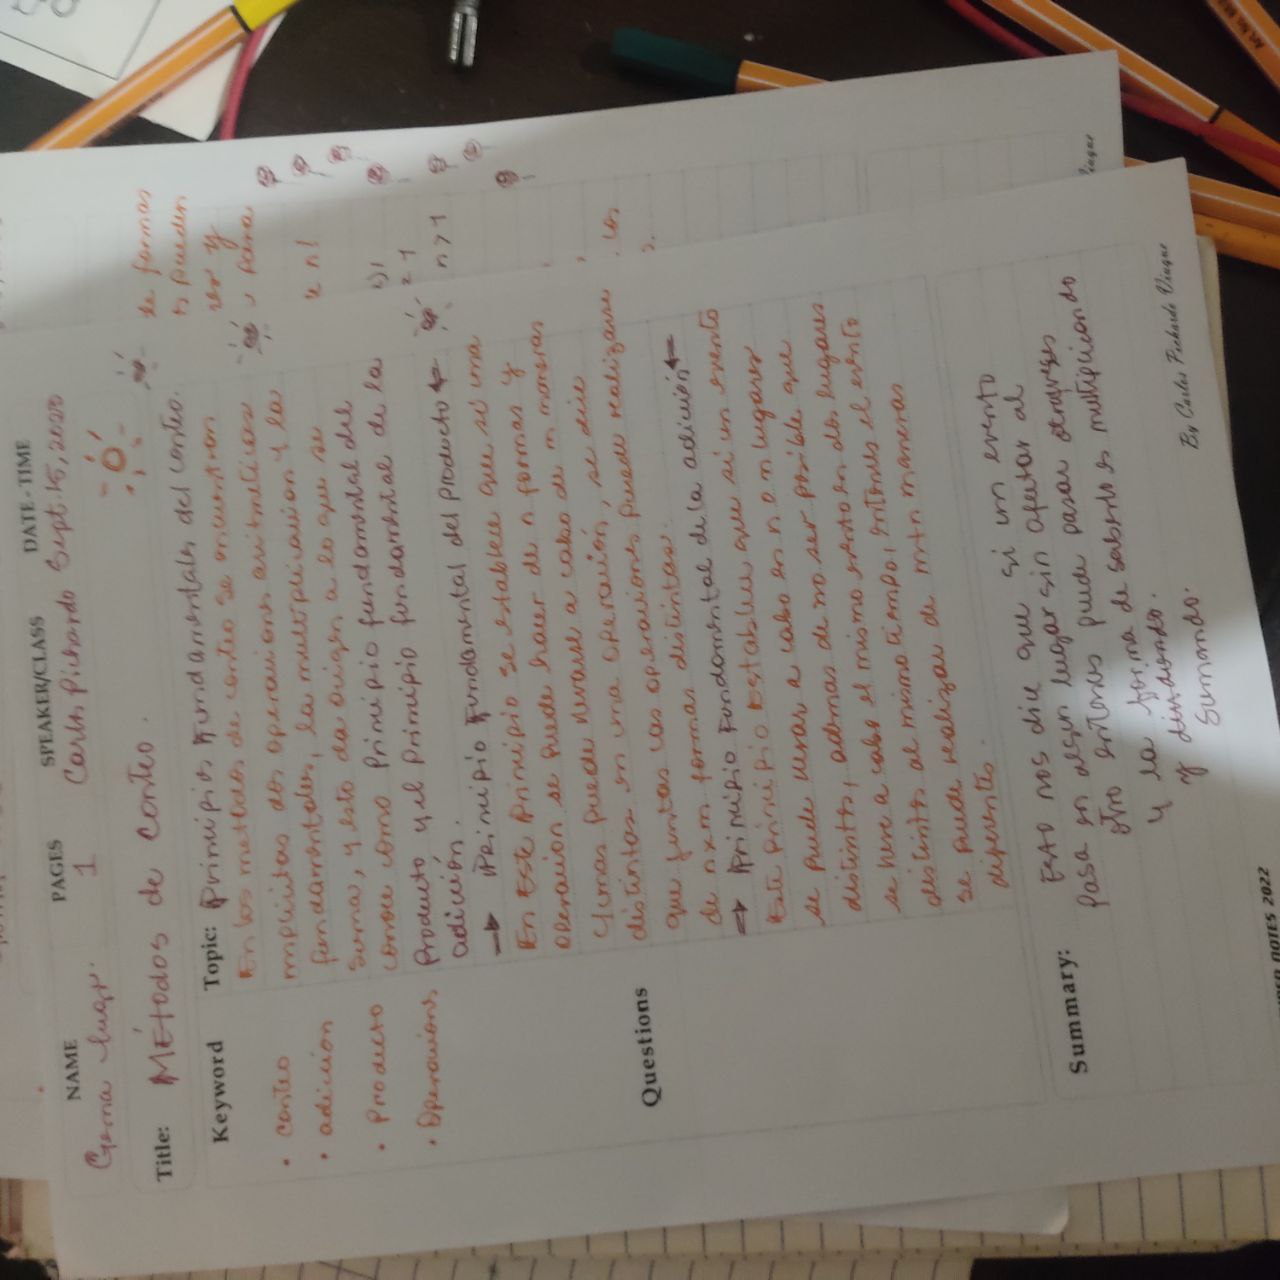 NAME PAGES SPEAKER/CLASS DATE - TIME
Gema 1 Carlos Pichardo Sept. 15, 2020
Title: MÉTODOS de conteo.
Keyword
• conteo
• adicion
• Producto
• Operaciones
Questions
Topic: Principios Fundamentales del conteo.
En los metodos de conteo se encuentran
implicitas dos operaciones aritmeticas
fundamentales, la multiplicacion y la
suma, y esto da origen a lo que se
conoce como Principio fundamental del
Producto y el Principio fundamental de la
adicion.
→ Principio Fundamental del producto ←
En Este Principio se establece que si una
operacion se puede hacer de n formas y
distintas en una operacion, se dice
que juntas las operaciones puede realizarse
de nxm formas distintas.
→ Principio Fundamental de la adicion ←
Este Principio Establece que si un evento
se puede llevar a cabo en n o m lugares
distintos, ademas de no ser posible que
se lleve a cabo el mismo evento en dos lugares
distintos al mismo tiempo, entonces el evento
se puede realizar de m+n maneras
diferentes.
Summary: Esto nos dice que si un evento
pasa en algun lugar sin afectar al
otro entonces puede pasar otra vez
y la forma de saberlo es multiplicando
y dividiendo.
y Sumando.
By Carlos Pichardo Viuque
NOTES 2022
de formas
pueden
y
para
n!
n > 1
los